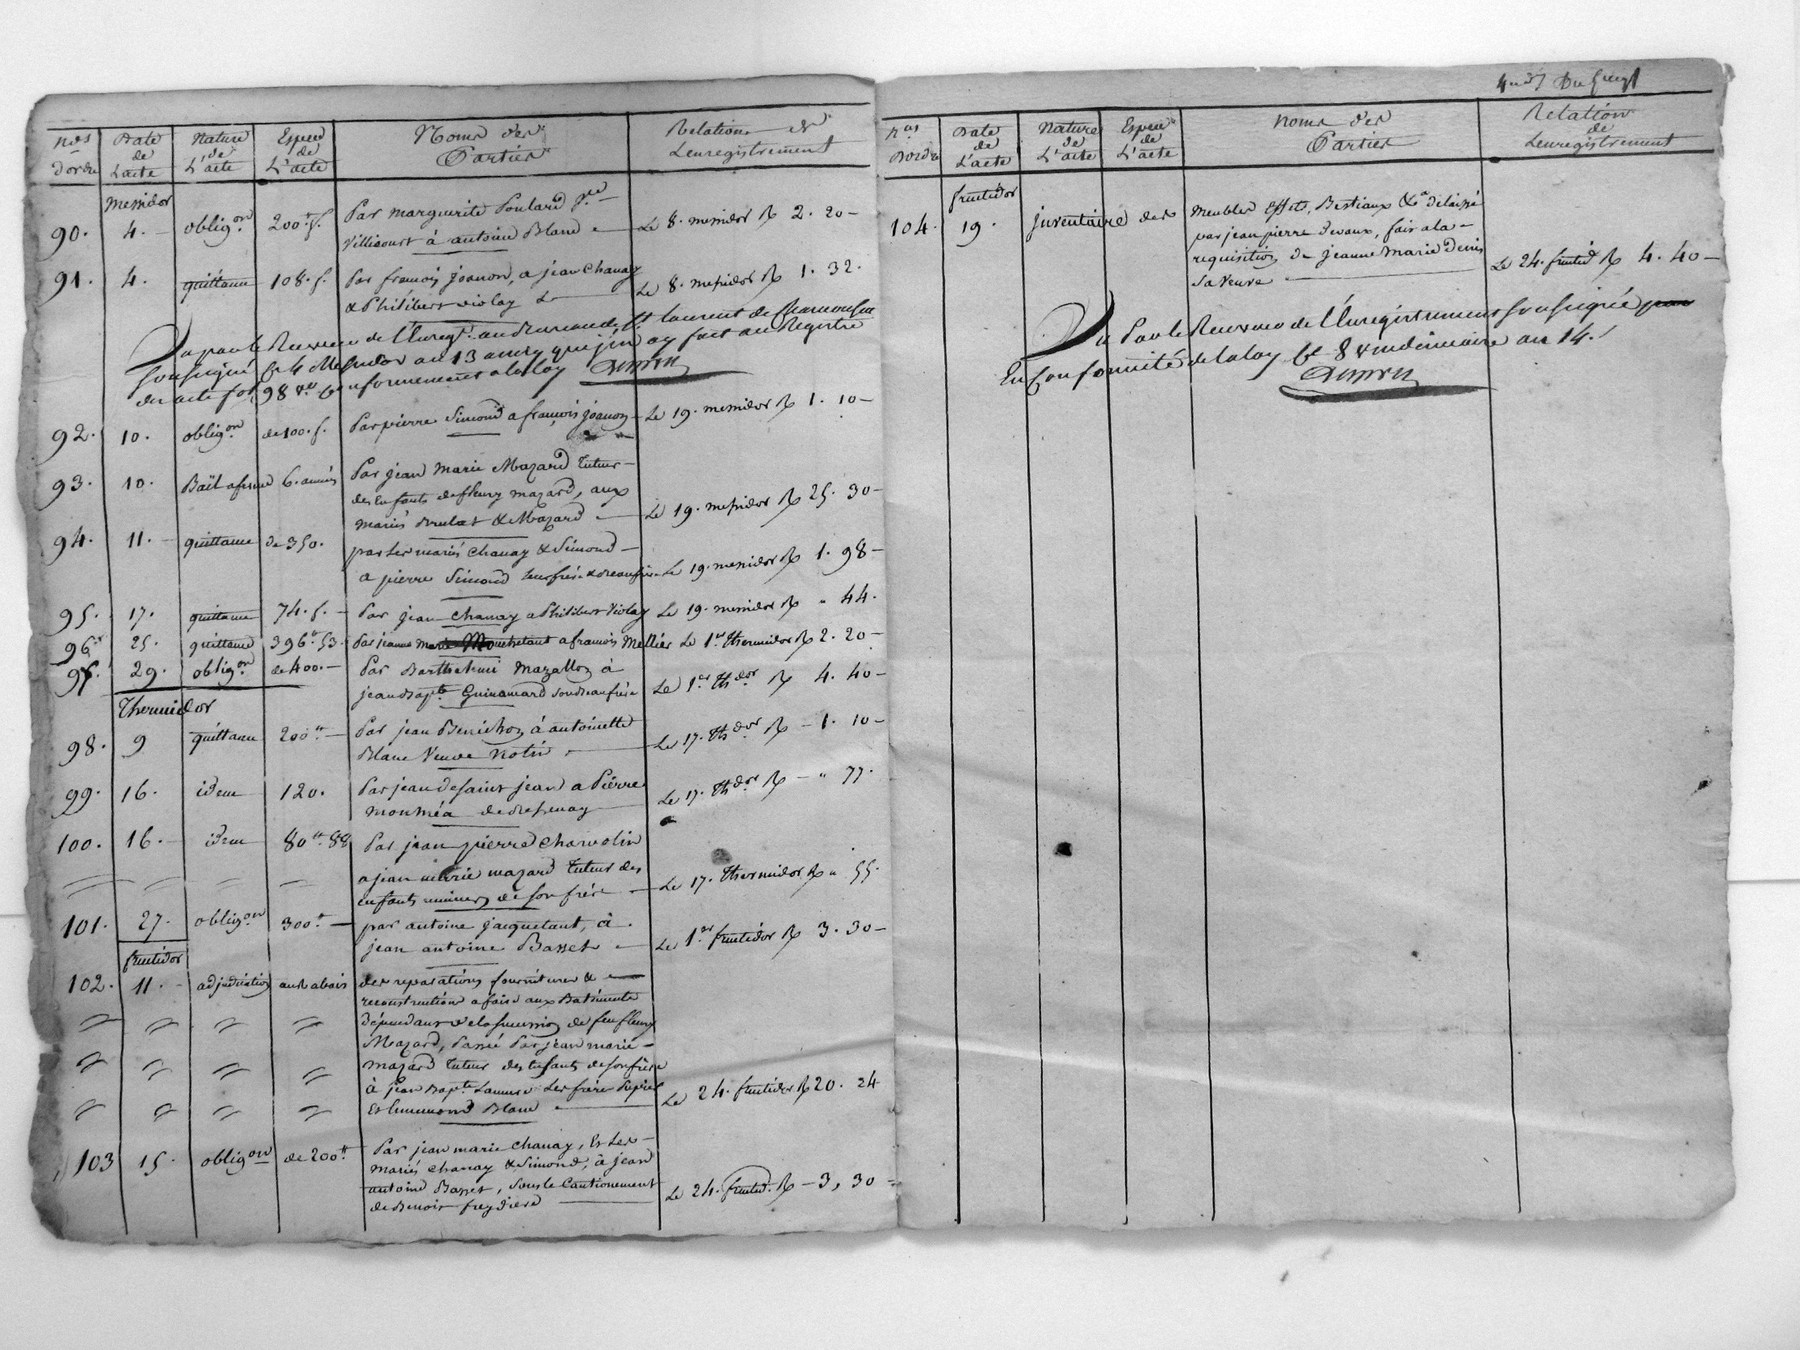 Nos d'ordre | Date de L'acte | Nature de L'acte | Espece de L'acte | Noms des Parties | Relation de L'enregistrement
Messidor
90. 4. obligon 200 f. Par marguerite Poulard
à antoine Blanc Le 8. messidor R 2. 20
91. 4. quittance 108. f. Par francois joanon, a jean Chanay
& Philibert violay Le 8. messidor R 1. 32.
Vu par le Receveur de l'Enregt. au Bureau de St laurent de Chamousset
soussigné le 4 Messidor an 13
des actes fo 98 Vo conformement a la loy
92. 10. obligon de 100. f. Par pierre Simond a francois joanon Le 19. messidor R 1. 10
93. 10. Bail a ferme 6. années Par jean marie Mazard tuteur
des enfants de fleury mazard, aux
mariés Brulas & Mazard Le 19. messidor R 25. 30
94. 11. quittance de 350. par les mariés chanay & Simond
a pierre Simond leur frère & beaufrère Le 19. messidor R 1. 98
95. 17. quittance 74. f. Par jean chanay a Philibert Violay Le 19. messidor R " 44.
96. 25. quittance 396 53. Par jeanne a francois Mellier Le 1er Thermidor R 2. 20
97. 29. obligon de 400. Par Barthelemi Mazallon à
jean Bapte. son Beaufrère Le 1er Thdor R 4. 40
Thermidor
98. 9 quittance 200 Par jean Benichon à antoinette
Blanc Veuve Le 17. Thdor R 1. 10
99. 16. idem 120. Par jean desaint jean a Pierre
Le 17. Thdor R " 77.
100. 16. idem 80 88 Par jean pierre charvolin
a jean marie mazard tuteur des
enfants mineurs de son frère Le 17. Thermidor R " 55.
101. 27. obligon 300 par antoine jacquetant, à
jean antoine Basset Le 1er fructidor R 3. 30
fructidor
102. 11. adjudication au Rabais des reparations fournitures &
reconstructions a faire aux Batiments
dépendant de la succession de feu fleury
Mazard, Passé Par jean marie
mazard tuteur des Enfants de son frère
à jean Bapte.
Blanc Le 24. fructidor R 20. 24
103 15. obligon de 200 Par jean marie chanay, Et Les
mariés chanay & Simond, à jean
antoine Basset, sous le Cautionnement
de Benoit freydiere Le 24. fructid. R 3, 30
Nos Dordre | Date de L'acte | Nature de L'acte | Espece de L'acte | Noms des Parties | Relation de Lenregistrement
fructidor
104. 19. inventaire des meubles Effets, Bestiaux & delaissé
par jean pierre devaux, fait a la
requisition de jeanne marie Denis
sa veuve Le 24. fructid R 4. 40
Vu Par le Receveur de l'Enregistrement soussigné
En conformité de la loy le 8 vendémiaire an 14.